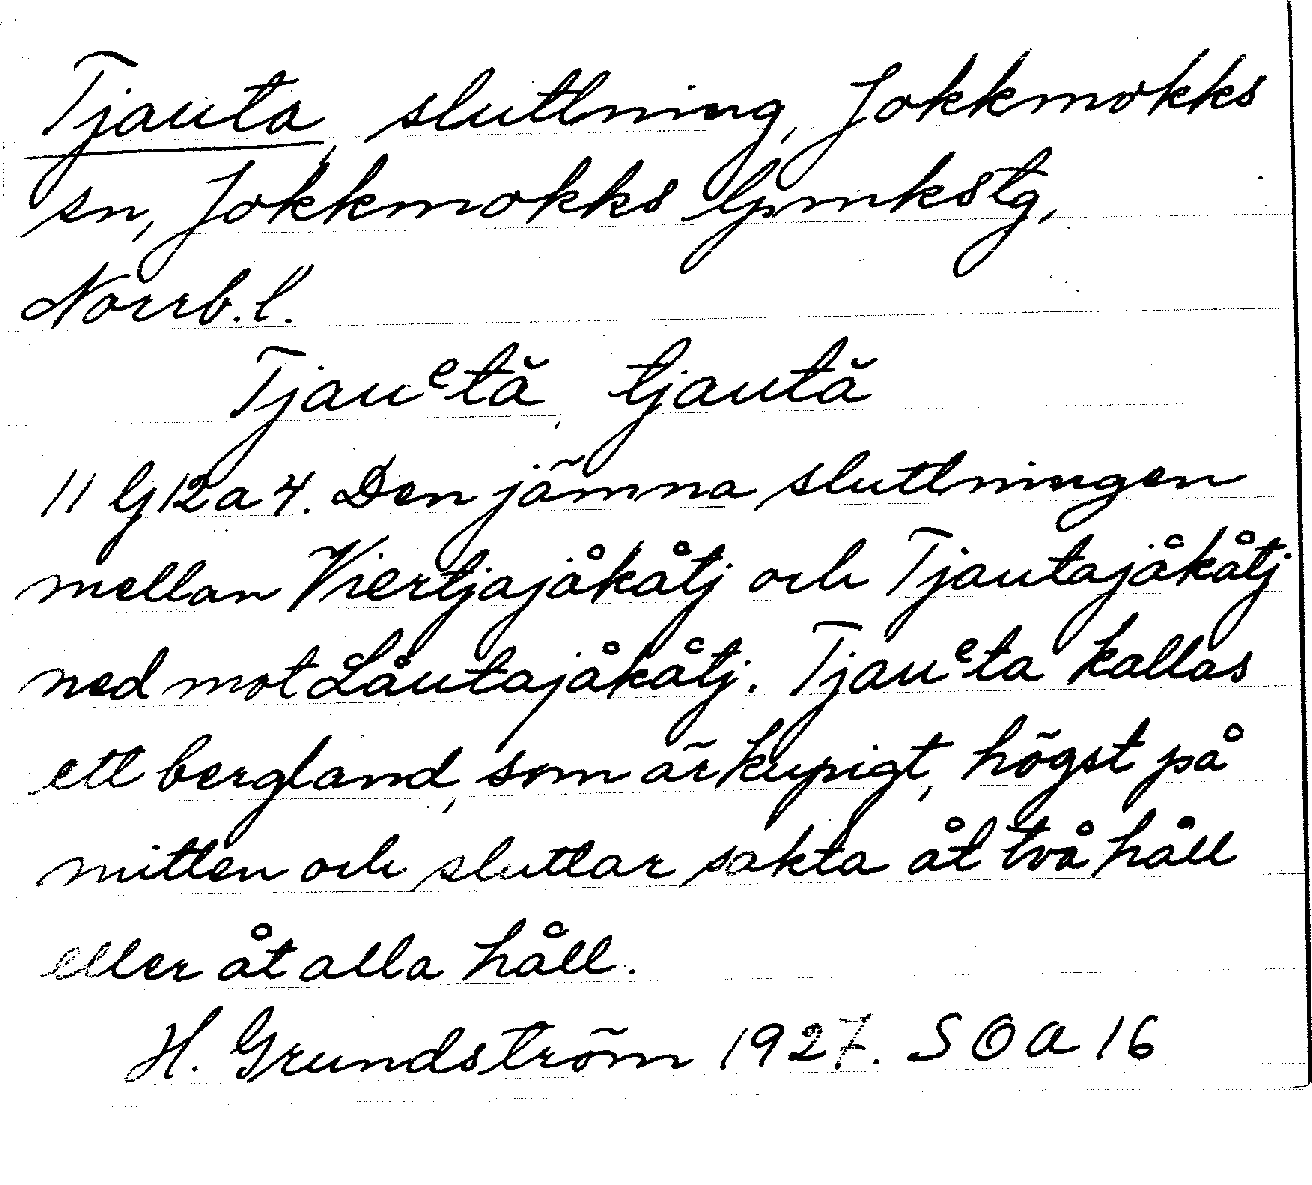 Tjauta, sluttning, Jokkmokks
sn, Jokkmokks lpmkstg,
Norrb. l.
Tjauᵉtă, tjaută
11 G 12 a 4. Den jämna sluttningen
mellan Viertjajåkåtj och Tjautajåkåtj
ned mot Låutajåkåtj. Tjauᵉta kallas
ett bergland, som är kupigt, högst på
mitten och sluttar sakta åt två håll
eller åt alla håll.
H. Grundström 1927. SOA 16